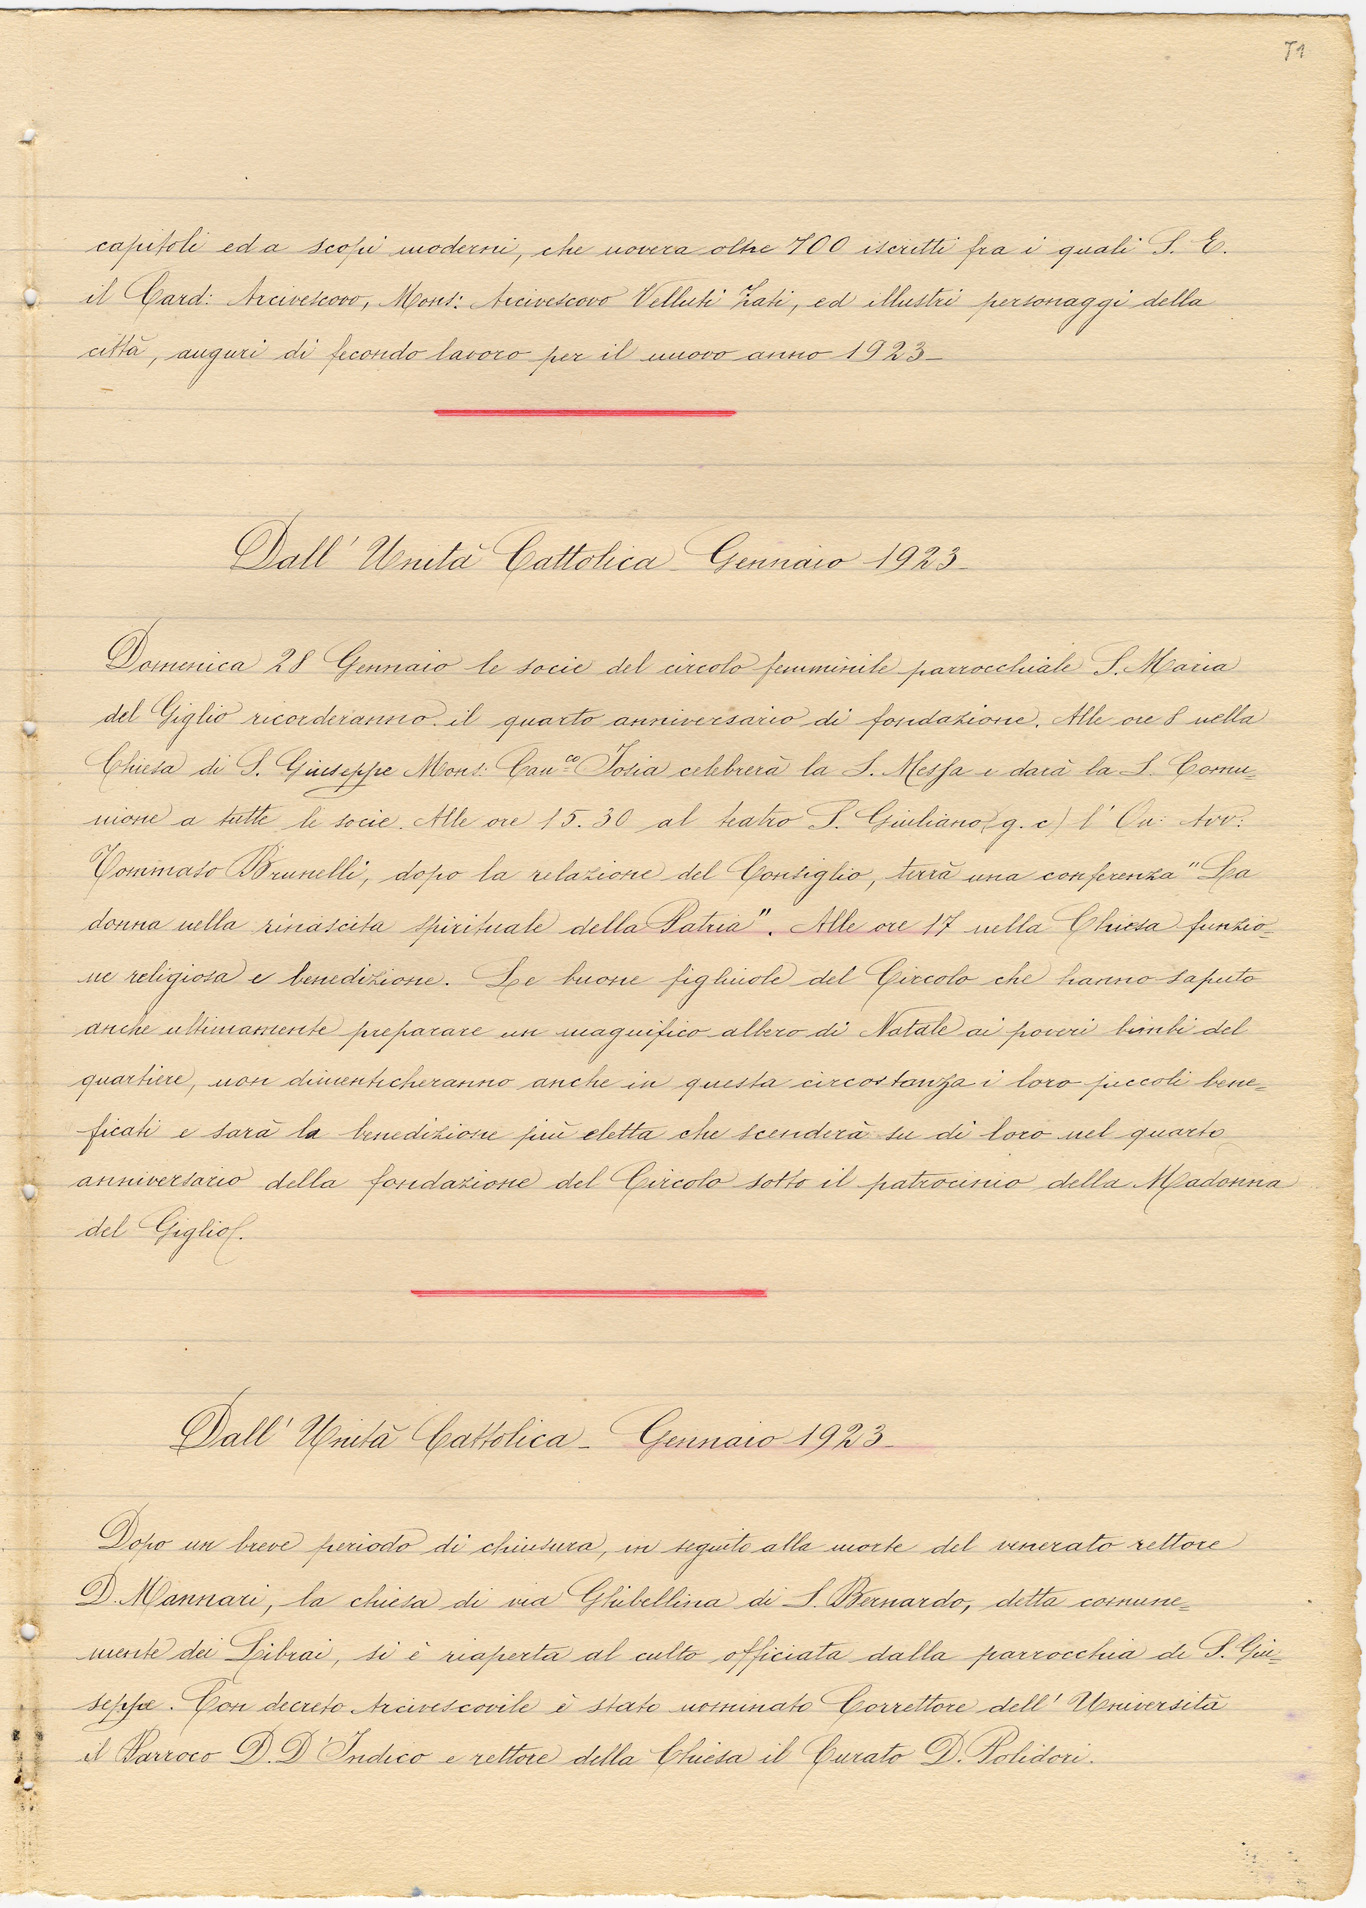 71
capitoli ed a scopi moderni, che novera oltre 700 iscritti fra i quali S. E.
il Card: Arcivescovo, Mons: Arcivescovo Velluti Zati, ed illustri personaggi della
città, auguri di fecondo lavoro per il nuovo anno 1923_
Dall' Unità Cattolica_ Gennaio 1923_
Domenica 28 Gennaio le socie del circolo femminile parrocchiale S. Maria
del Giglio ricorderanno il quarto anniversario di fondazione. Alle ore 8 nella
Chiesa di S. Giuseppe Mons: Can.co Josia celebrerà la S. Messa e darà la S. Comu=
nione a tutte le socie. Alle ore 15.30 al teatro S. Giuliano (g. c) l' On: Avv:
Tommaso Brunelli, dopo la relazione del Consiglio, terrà una conferenza "La
donna nella rinascita spirituale della Patria". Alle ore 17 nella Chiesa funzio=
ne religiosa e benedizione. Le buone figliuole del Circolo che hanno saputo
anche ultimamente preparare un magnifico albero di Natale ai poveri bimbi del
quartiere, non dimenticheranno anche in questa circostanza i loro piccoli bene=
ficati e sarà la benedizione più eletta che scenderà su di loro nel quarto
anniversario della fondazione del Circolo sotto il patrocinio della Madonna
del Giglio.
Dall' Unità Cattolica_ Gennaio 1923_
Dopo un breve periodo di chiusura, in seguito alla morte del venerato rettore
D. Mannari, la chiesa di via Ghibellina di S. Bernardo, detta comune=
mente dei Librai, si è riaperta al culto officiata dalla parrocchia di S. Giu=
seppe. Con decreto Arcivescovile è stato nominato Correttore dell' Università
il Parroco D. D'Indico e rettore della Chiesa il Curato D. Polidori.